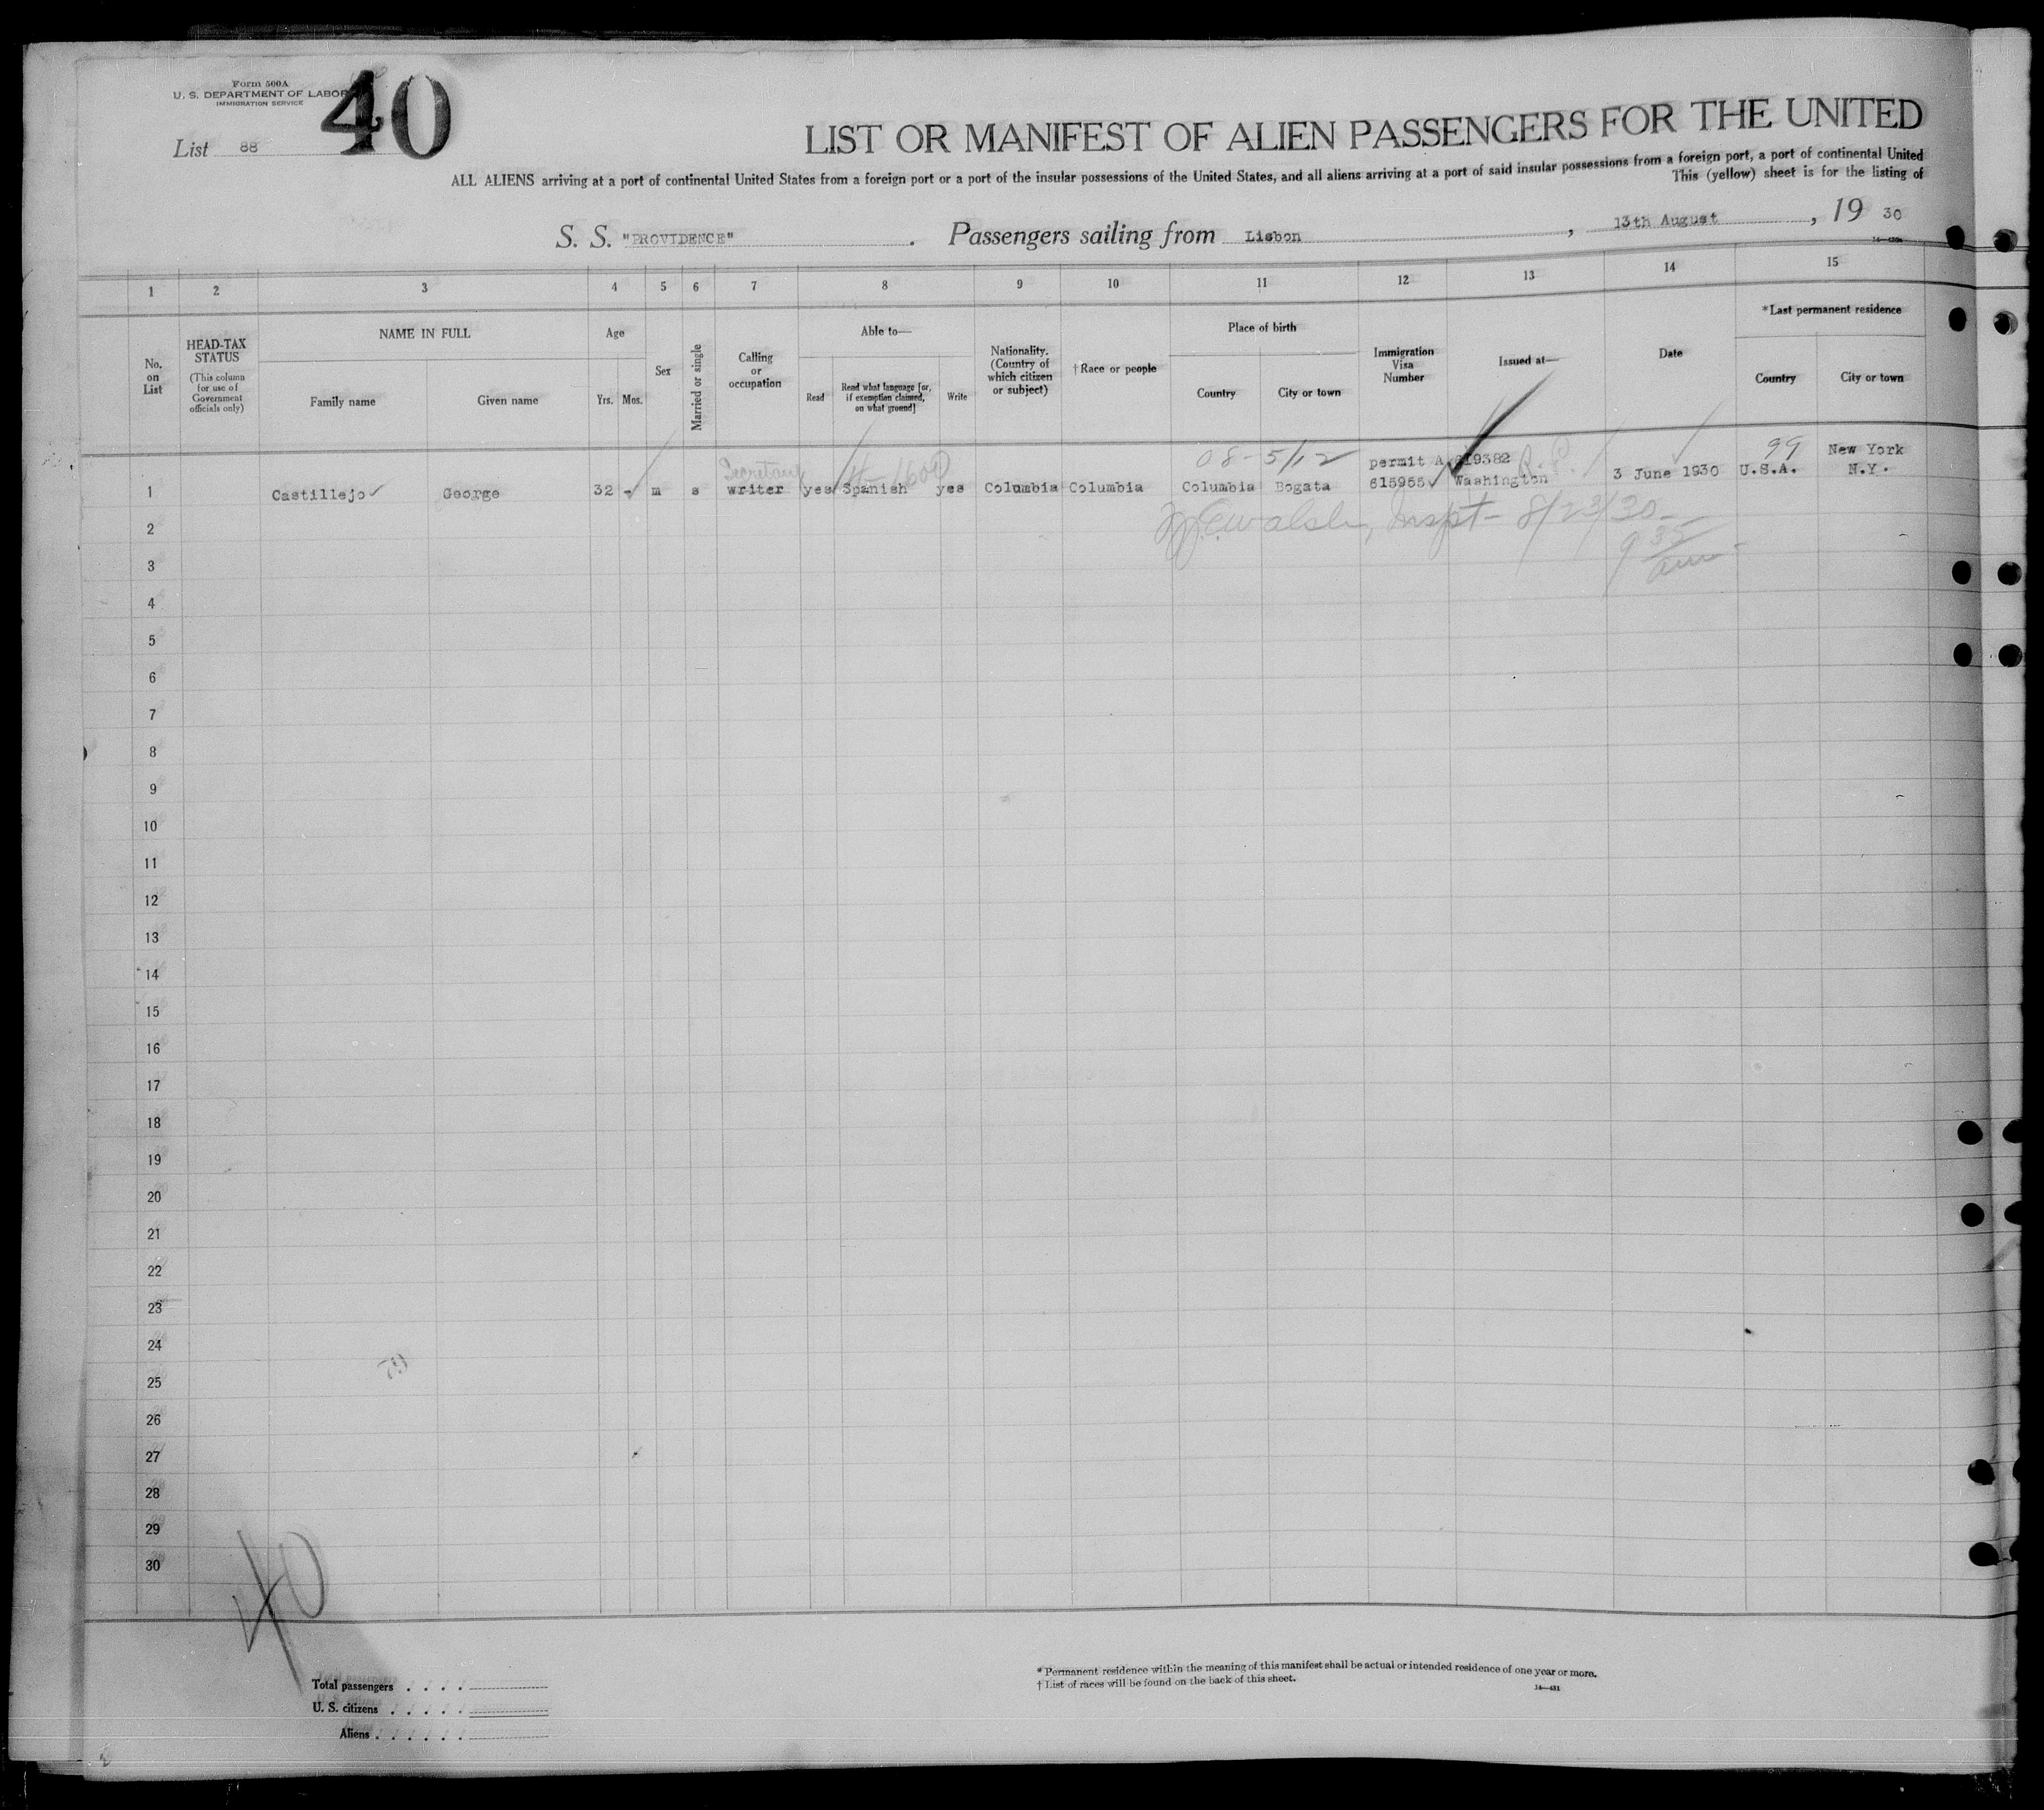 Form 500A
U. S. DEPARTMENT OF LABOR
IMMIGRATION SERVICE
40
List 88
LIST OR MANIFEST OF ALIEN PASSENGERS FOR THE UNITED
ALL ALIENS arriving at a port of continental United States from a foreign port or a port of the insular possessions of the United States, and all aliens arriving at a port of said insular possessions from a foreign port, a port of continental United
This (yellow) sheet is for the listing of
S. S. "PROVIDENCE" . Passengers sailing from Lisbon , 13th August , 19 30
1 2 3 4 5 6 7 8 9 10 11 12 13 14 15
No. on List
HEAD-TAX STATUS
(This column for use of Government officials only)
NAME IN FULL
Family name Given name
Age
Yrs. Mos.
Sex
Married or single
Calling or occupation
Able to—
Read
Read what language [or, if exemption claimed, on what ground]
Write
Nationality. (Country of which citizen or subject)
†Race or people
Place of birth
Country City or town
Immigration Visa Number
Issued at—
Date
*Last permanent residence
Country City or town
Secretary 08-5/12 permit A 619382 R.P. 99 New York
1 Castillejo George 32 - m s writer yes Spanish yes Columbia Columbia Columbia Bogata 615965 Washington 3 June 1930 U.S.A. N.Y.
Walsh, Inspt- 8/23/30
2
9 35
am
3
4
5
6
7
8
9
10
11
12
13
14
15
16
17
18
19
20
21
22
23
24
25
26
27
28
29
30
40
Total passengers . . . .
U. S. citizens . . . . .
Aliens . . . . . .
* Permanent residence within the meaning of this manifest shall be actual or intended residence of one year or more.
† List of races will be found on the back of this sheet.
14—431